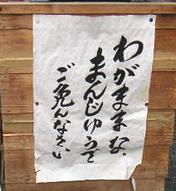 わがままな
まんじゅうで
ご免んなさい